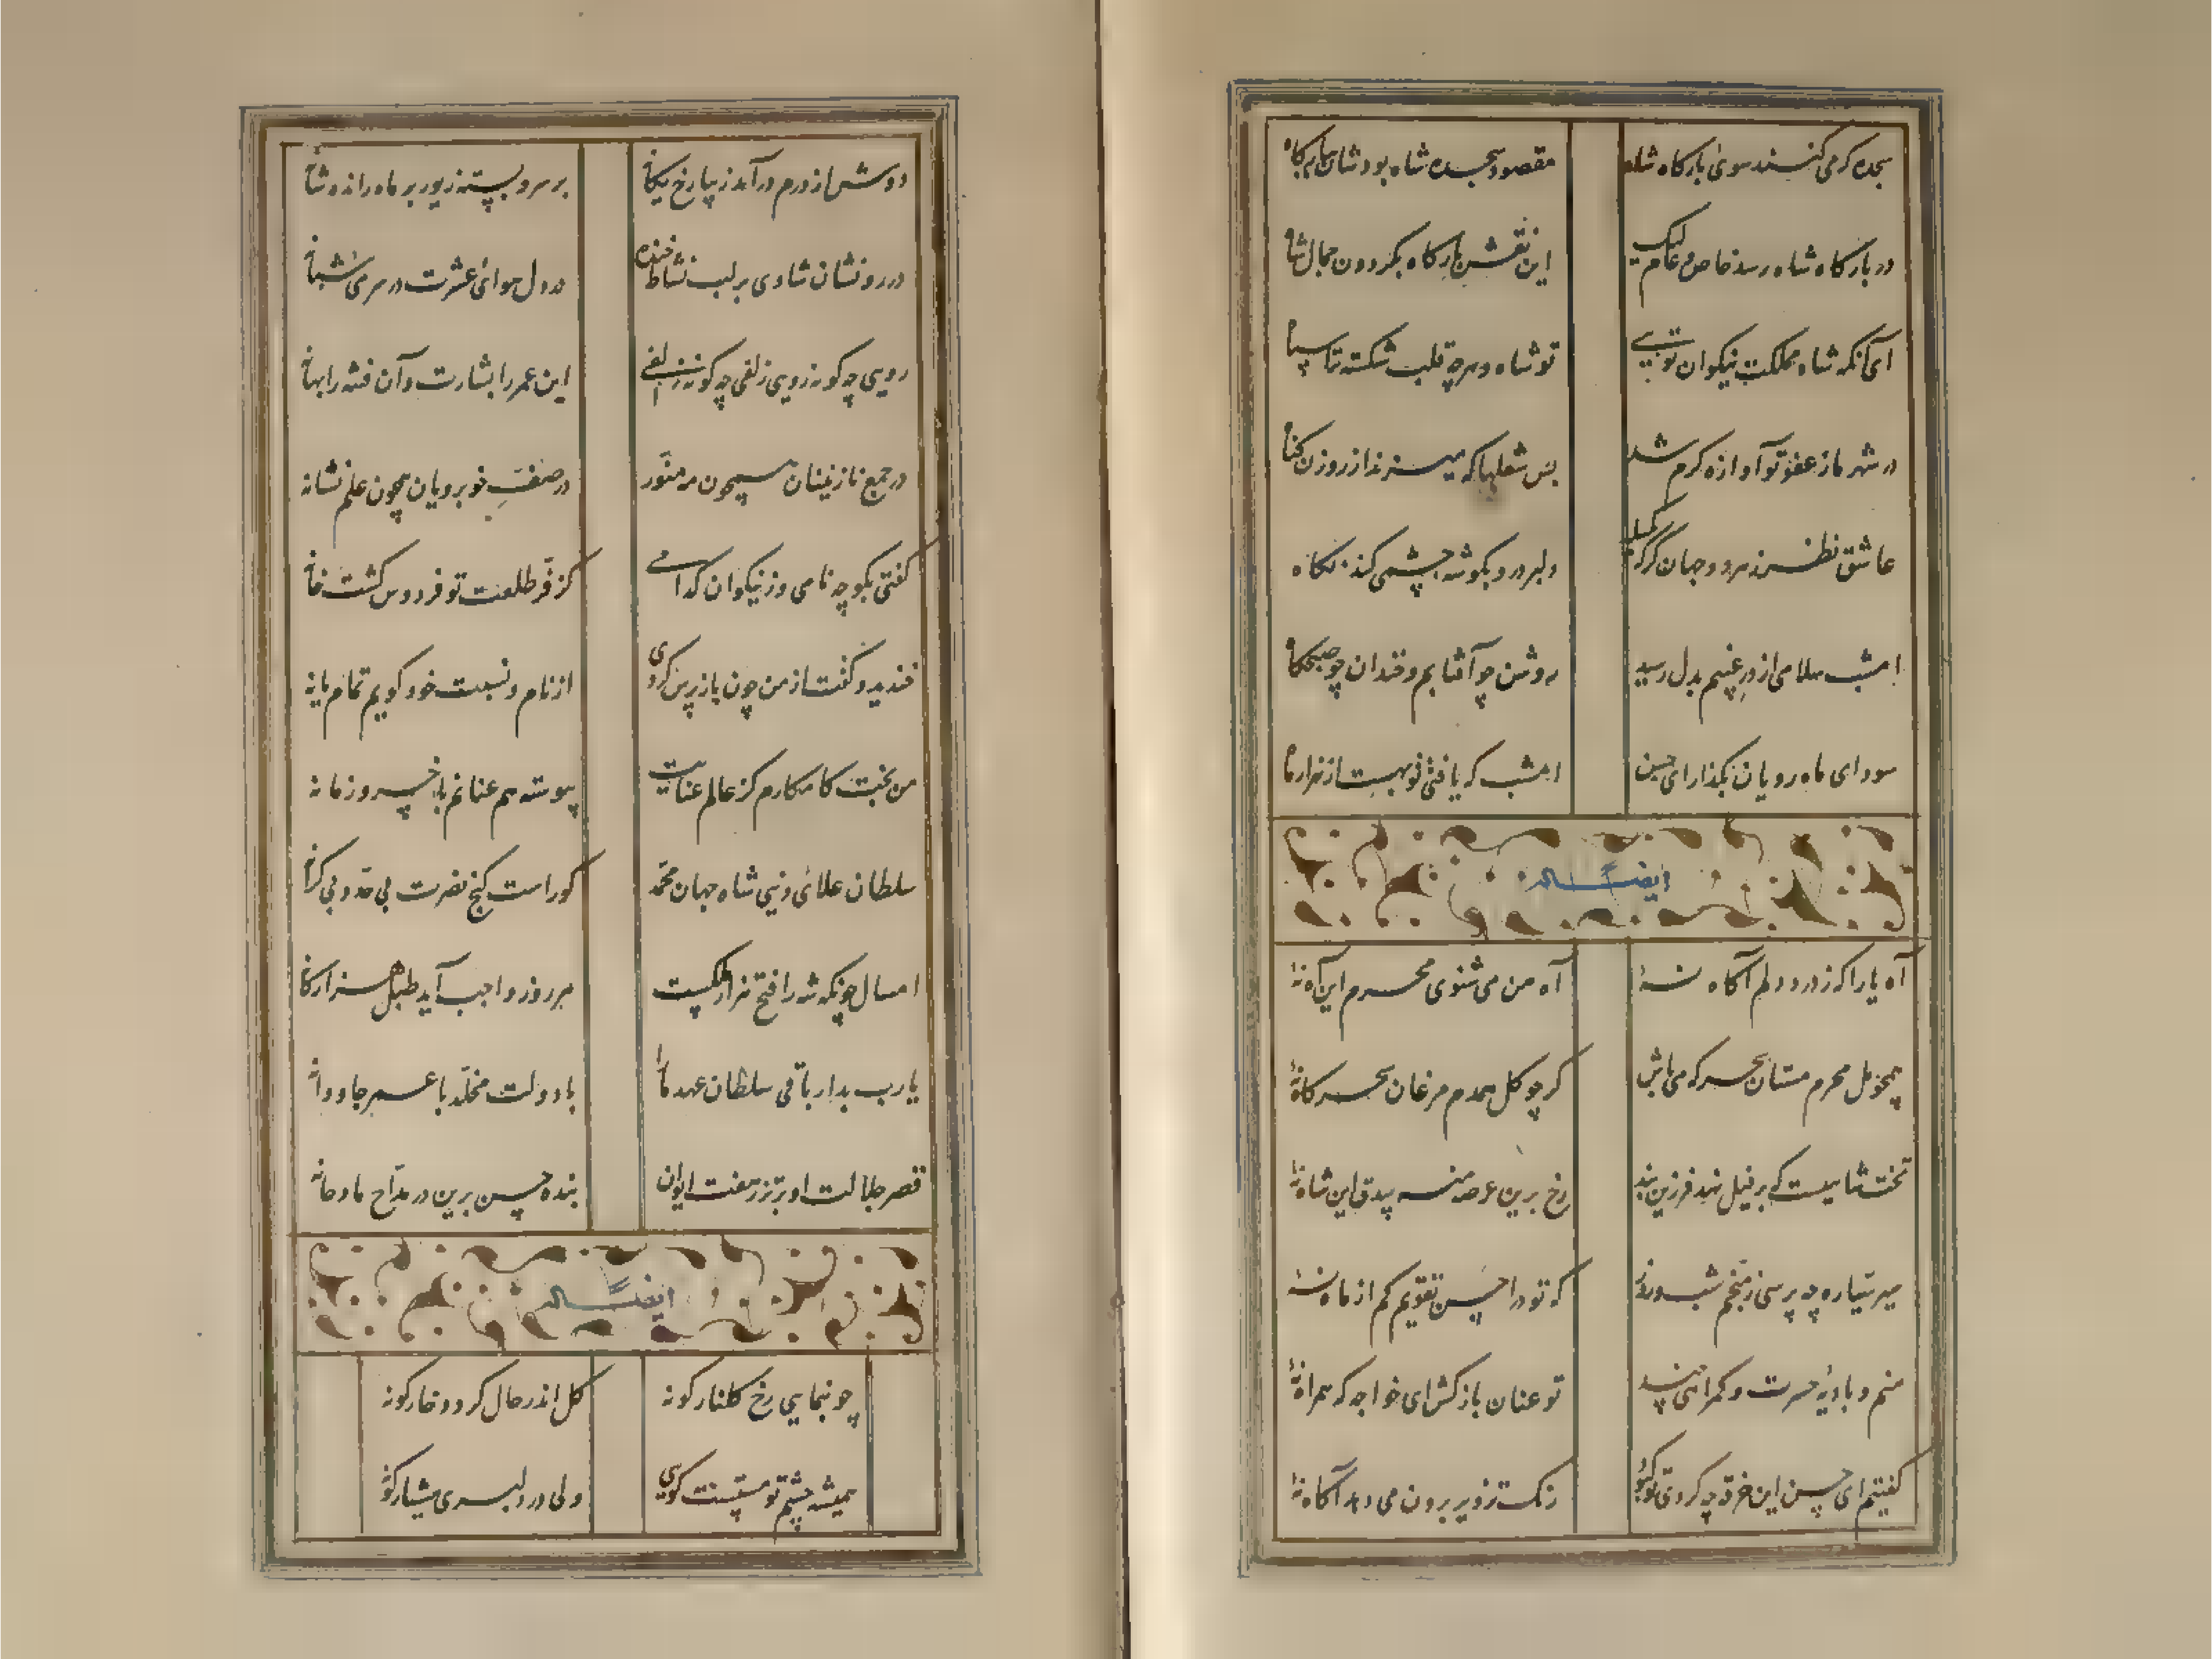 سجده که می کنند سوی بارگاه شاه مقصود سجده شاه بود شان نه بارگاه
در بارگاه شاه رسد خاص و عام لیک این نقش بارگاه بگردون جمال شاه
ای آنکه شاه مملکت نیکوان تویی تو شاه و هر چه قلب شکسته تراسپاه
در شهر ما ز عفو تو آوازه کرم شد بس شعلها که میزند از روزن گناه
عاشق نظر نزد دو جهان گر کند دلبر در و بگوشه چشمی کند نگاه
امشب سلامی از در غیبم بدل رسید روشن چو آفتابم و خندان چو صبحگاه
سودای ماه رویان بگذار ای حسن امشب که یافتی تو بهست از هزار ماه
ایضاً له
آه یارا که ز درد دلم آگاه نهٔ آه من می شنوی محرم این آه نهٔ
همچو مل محرم مستان سحر که می باش گر چو گل همدم مرغان سحرگاه نهٔ
تخت شاهیست که بر فیل نهد فرزین بند رخ برین عرصه منه بیدق این شاه نهٔ
سیر سیاره چه پرسی ز منجم شب و روز که تو در احسن تقویم کم از ماه نهٔ
منم و بادیهٔ حسرت و گمراهی چند تو عنان باز کش ای خواجه که همراه نهٔ
گفتیم ای حسن این خرقه چه کردی تو کبود رنگ تزویر برون می دهد آگاه نهٔ
دوش از درم درآمد زیبا رخ یگانه بر سرو بسته زیور بر ماه رانده شانه
در رو نشان شادی بر لب نشاط خنده در دل هوای عشرت در سر می شبانه
رویی چه گونه رویی زلفی چه گونه زلفی این عمر را بشارت وآن فتنه را بهانه
در جمع نازنینان همچون مه منور در صف خوبرویان همچون علم نشانه
گفتی بگو چه نامی وز نیکوان کدامی کز فر طلعت تو فردوس گشت خانه
خندید و گفت از من چون باز پرس کردی از نام و نسبت خود گویم تمام یا نه
من بخت کامکارم کز عالم عنایت پیوسته هم عنانم با خسرو زمانه
سلطان علائی دنیی شاه جهان محمد کوراست گنج نصرت بی حد و بی کرانه
امسال چونکه شه را فتح هزار لکست هر روز واجب آید طبل هزارگانه
یارب بدار باقی سلطان عهد ما را با دولت مخلد با عمر جاودانه
قصر جلالت او برتر ز هفت ایوان بنده حسن برین در مداح مادحانه
ایضاً له
چو بنمایی رخ گلنار گونه گل اندر حال گردد خار گونه
همیشه چشم تو مستست گویی ولی در دلبری هشیار گونه